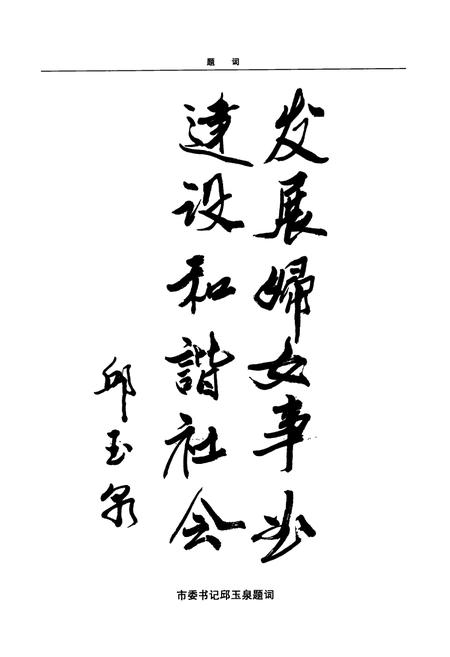 题 词
发展婦女事业
建设和諧社会
邱玉泉
市委书记邱玉泉题词